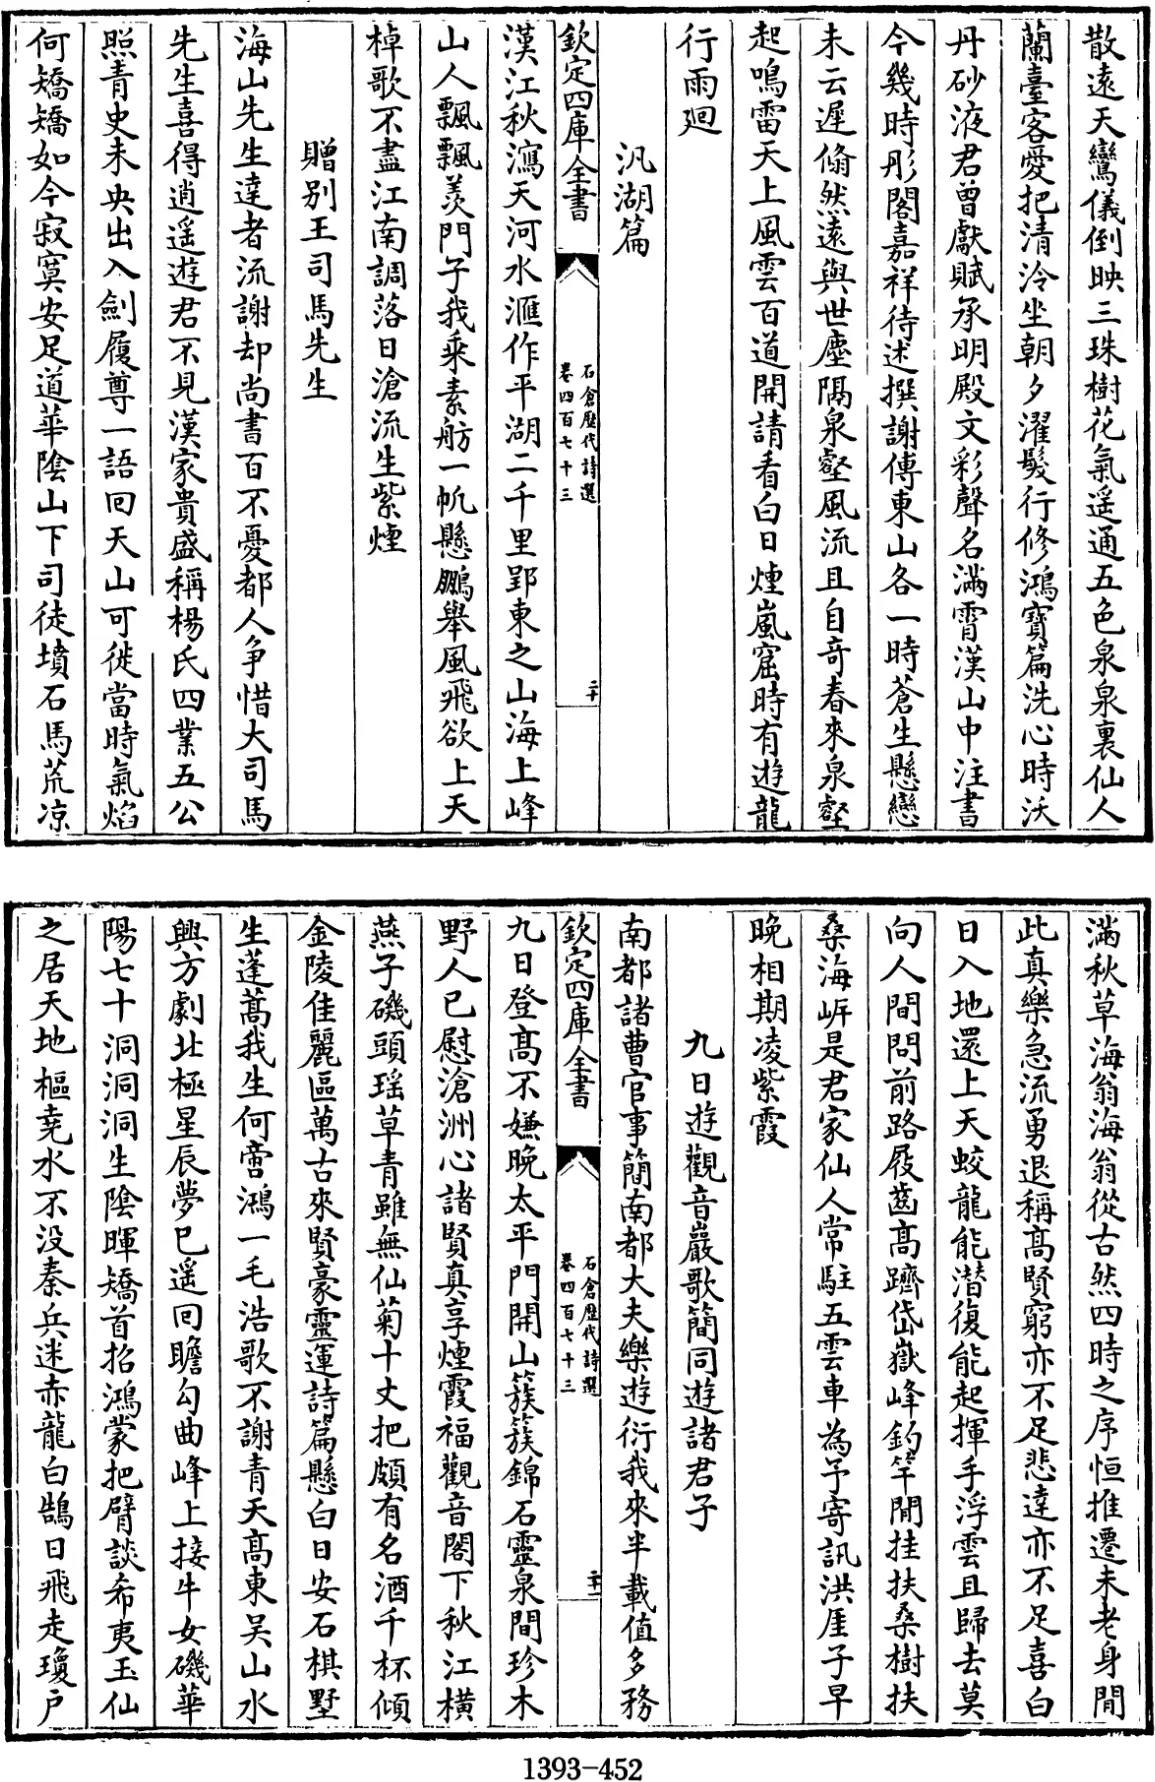 散遠天鸞儀倒映三珠樹花氣遥通五色泉泉裏仙人
蘭臺客愛把清泠坐朝夕濯髮行修鴻寶篇洗心時沃
丹砂液君曾獻賦承明殿文彩聲名滿霄漢山中注書
今幾時彤閣嘉祥待述撰謝傅東山各一時蒼生懸戀
未云遲翛然遠與世塵隔泉壑風流且自竒春來泉壑
起鳴雷天上風雲百道開請看白日煙嵐窟時有遊龍
行雨廻
汎湖篇
欽定四庫全書
石倉歷代詩選
卷四百七十三
二十
漢江秋瀉天河水滙作平湖二千里郢東之山海上峰
山人飄飄羡門子我乘素舫一帆懸鵬舉風飛欲上天
棹歌不盡江南調落日滄流生紫煙
贈别王司馬先生
海山先生達者流謝却尚書百不憂都人争惜大司馬
先生喜得逍遥遊君不見漢家貴盛稱楊氏四業五公
照青史未央出入劍履尊一語囘天山可徙當時氣焰
何矯矯如今寂寞安足道華陰山下司徒墳石馬荒凉
滿秋草海翁海翁從古然四時之序恒推遷未老身閒
此真樂急流勇退稱髙賢窮亦不足悲達亦不足喜白
日入地還上天蛟龍能潛復能起揮手浮雲且歸去莫
向人間問前路屐齒髙躋岱嶽峰釣竿閒挂扶桑樹扶
桑海㟁是君家仙人常駐五雲車為予寄訊洪厓子早
晚相期凌紫霞
九日遊觀音巖歌簡同遊諸君子
南都諸曹官事簡南都大夫樂遊衍我來半載值多務
欽定四庫全書
石倉歷代詩選
卷四百七十三
二十一
九日登髙不嫌晚太平門開山簇簇錦石靈泉間珍木
野人已慰滄洲心諸賢真享煙霞福觀音閣下秋江横
燕子磯頭瑶草青雖無仙菊十丈把頗有名酒千杯傾
金陵佳麗區萬古來賢豪靈運詩篇懸白日安石棋墅
生蓬蒿我生何啻鴻一毛浩歌不謝青天髙東吴山水
興方劇北極星辰夢已遥囘瞻勾曲峰上接牛女磯華
陽七十洞洞洞生陰暉矯首招鴻蒙把臂談希夷玉仙
之居天地樞堯水不没秦兵迷赤龍白鵠日飛走瓊户
1393-452